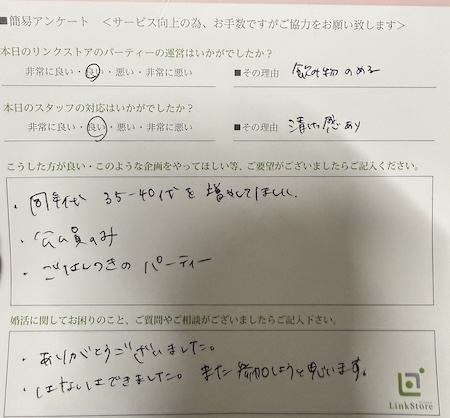 ■簡易アンケート <サービス向上の為、お手数ですがご協力をお願い致します>
本日のリンクストアのパーティーの運営はいかがでしたか?
非常に良い・良い・悪い・非常に悪い ■その理由 飲み物のめる
本日のスタッフの対応はいかがでしたか?
非常に良い・良い・悪い・非常に悪い ■その理由 清けつ感あり
こうした方が良い・このような企画をやってほしい等、ご要望がございましたらご記入ください。
・同年代 35-40代を増やしてほしい。
・公ム員のみ
・ごはんつきのパーティー
婚活に関してお困りのこと、ご質問やご相談がございましたらご記入下さい。
・ありがとうございました。
・はなしはできました。また参加しようと思います。
LinkStore